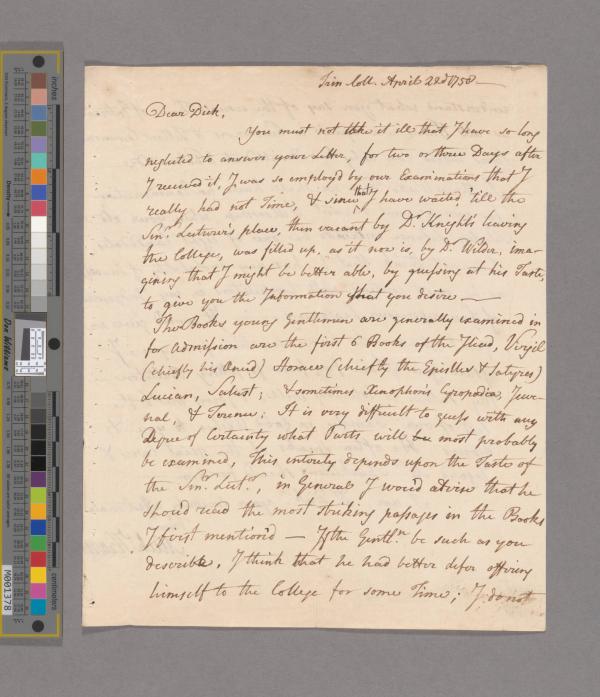 Trin Coll. April 22d 1758 —
Dear Dick,
You must not take it ill that I have so long
neglected to answer your Letter, for two or three Days after
I received it, I was so employ'd by our Examinations that I
really had not Time, & since that I have waited 'till the
Sinr. Lecturer's place, then vacant by Dr. Knight's leaving
the College, was filled up, as it now is, by Dr. Wilder, ima-
gining that I might be better able, by guessing at his Taste,
to give you the Information that you desire —
The Books young Gentlemen are generally examined in
for Admission are the first 6 Books of the Iliad, Virgil
(chiefly his Æneid) Horace (chiefly the Epistles & Satyres)
Lucian, Salust; & sometimes Xenophon's Cyropædia, Juve-
nal, & Terence; It is very difficult to guess with any
Degree of Certainty what Parts will be most probably
be examined, This entirely depends upon the Taste of
the Sinr. Lectr., in General I wou'd advise that he
should read the most striking passages in the Books
I first mention'd — If the Gentln. be such as you
describe, I think that he had better defer offering
himself to the College for some Time; I do not
inches
Density
Don Williams
centimetres
M001378